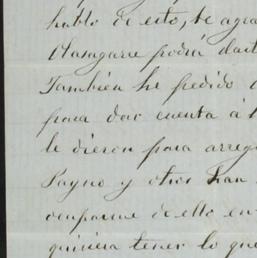 hablo de esto, te agra
podrá dar
También he pedido
para dar cuenta á
le dieron para arreg
Payno y otros han
ocuparme de ello en
quisiera tener lo que